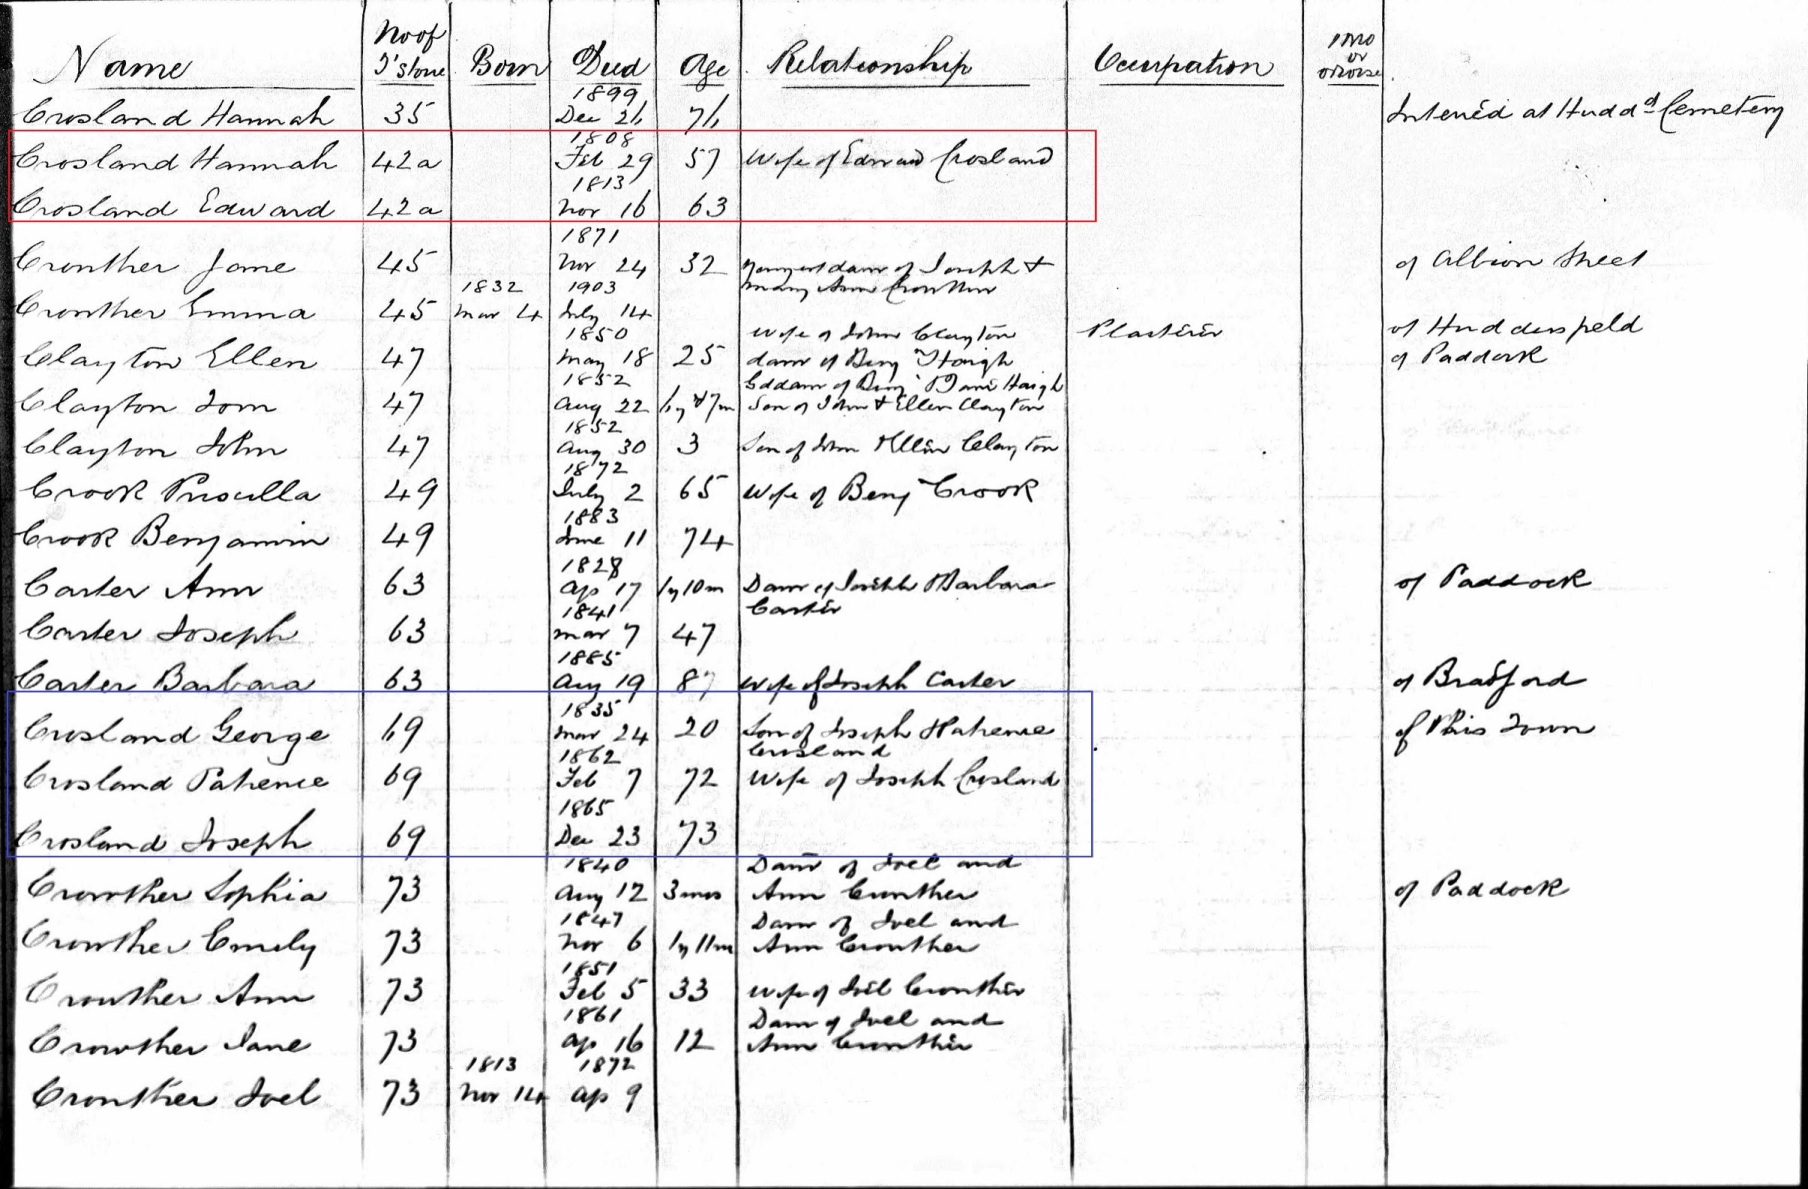 Name No of T'stone Born Died Age Relationship Occupation
1899
Crosland Hannah 35 Dec 26 76 Interred at Hudd'd Cemetery
1808
Crosland Hannah 42a Feb 29 57 Wife of Edward Crosland
1813
Crosland Edward 42a Nov 16 63
1871
Crowther Jane 45 Nov 24 32 youngest daur of Joseph & of Albion Street
1832 1903 Mary Ann Crowther
Crowther Emma 45 Mar 4 July 14
1850 Wife of John Clayton Plasterer of Huddersfield
Clayton Ellen 47 May 18 25 daur of Benj Haigh of Paddock
1852 Haigh
Clayton Tom 47 Aug 22 1y & 7m Son of John & Ellen Clayton
1852
Clayton John 47 Aug 30 3 Son of John & Ellen Clayton
1872
Crook Priscilla 49 July 2 65 Wife of Benj Crook
1883
Crook Benjamin 49 June 11 74
1828
Carter Ann 63 Ap 17 1y 10m Daur of Joseph & Barbara of Paddock
1841 Carter
Carter Joseph 63 Mar 7 47
1885
Carter Barbara 63 Aug 19 87 Wife of Joseph Carter of Bradford
1835
Crosland George 69 Mar 24 20 Son of Joseph & Patience of this Town
1862 Crosland
Crosland Patience 69 Feb 7 72 Wife of Joseph Crosland
1865
Crosland Joseph 69 Dec 23 73
1840 Daur of Joel and
Crowther Sophia 73 Aug 12 3 mos Ann Crowther of Paddock
1847 Daur of Joel and
Crowther Emily 73 Nov 6 1y 11m Ann Crowther
1851
Crowther Ann 73 Feb 5 33 Wife of Joel Crowther
1861 Daur of Joel and
Crowther Jane 73 Ap 16 12 Ann Crowther
1813 1872
Crowther Joel 73 Nov 14 Ap 9